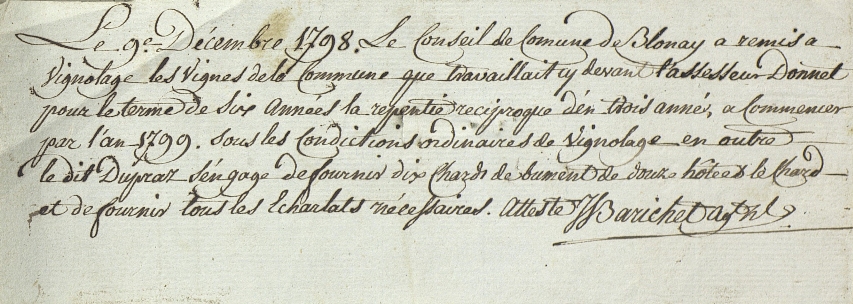 Le 9.e Décembre 1798. Le Conseil de Comune de Blonay a remis a
Vignolage les Vignes dela Commune que travaillait cy devant l'assesseur Donnet
pour le terme de Six Années la repentie reciproque dén trois année, a Commencer
par l'an 1799. sous les Condictions ordinaires de Vignolage en outre
le dit Dupraz s'éngage de fournir dix Chards de bument de douze hôteés le Chard
et de fournir tous les Echarlats nécessaires. Atteste Barichet